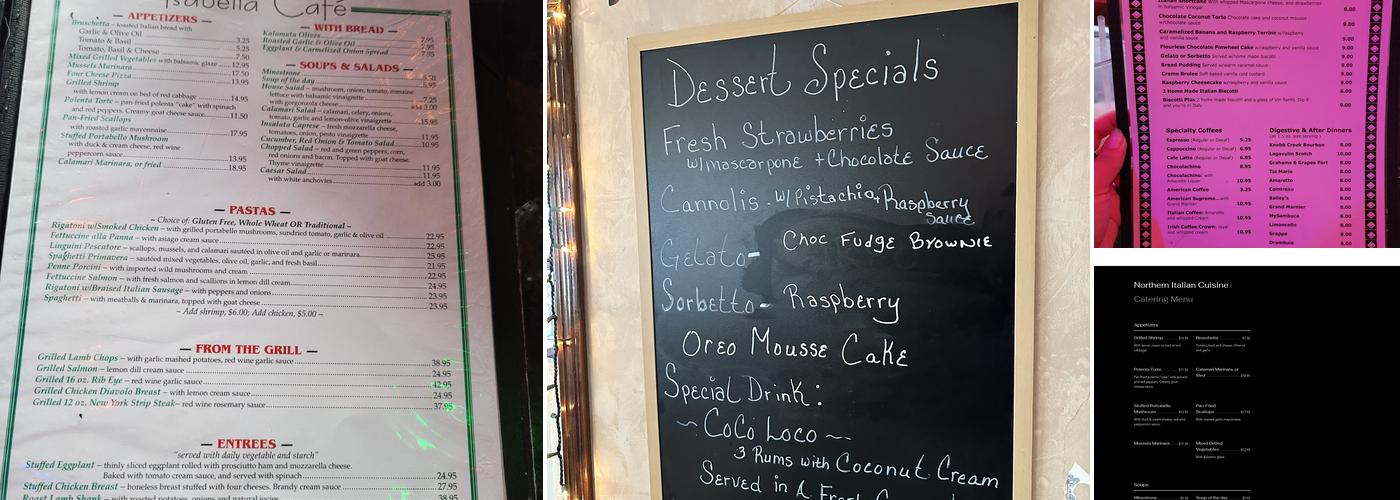 Isabella Café
— APPETIZERS —
Bruschetta – toasted Italian bread with
Garlic & Olive Oil
Tomato & Basil 3.25
Tomato, Basil & Cheese 5.25
Mixed Grilled Vegetables with balsamic glaze 7.50
Mussels Marinara 12.95
Four Cheese Pizza 17.50
Grilled Shrimp 13.95
with lemon cream on bed of red cabbage 14.95
Polenta Torte – pan-fried polenta "cake" with spinach
and red peppers. Creamy goat cheese sauce 11.50
Pan-Fried Scallops
with roasted garlic mayonnaise 17.95
Stuffed Portabello Mushroom
with duck & cream cheese, red wine
peppercorn sauce 13.95
Calamari Marinara, or fried 18.95
— WITH BREAD —
Kalamata Olives 7.95
Roasted Garlic & Olive Oil 7.95
Eggplant & Carmelized Onion Spread 7.95
— SOUPS & SALADS —
Minestrone
Soup of the day 5.50
House Salad – mushroom, onion, tomato, romaine
lettuce with balsamic vinaigrette 7.25
with gorgonzola cheese add 3.00
Calamari Salad – calamari, celery, onions,
tomato, garlic and lemon-olive vinaigrette 15.95
Insalata Caprese – fresh mozzarella cheese,
tomatoes, onion, pesto vinaigrette 11.95
Cucumber, Red Onion & Tomato Salad 10.95
Chopped Salad – red and green peppers, corn,
red onions and bacon. Topped with goat cheese.
Thyme vinaigrette 11.95
Caesar Salad 11.95
with white anchovies add 3.00
— PASTAS —
~ Choice of: Gluten Free, Whole Wheat OR Traditional ~
Rigatoni w/Smoked Chicken – with grilled portobello mushrooms, sundried tomato, garlic & olive oil 22.95
Fettuccine alla Panna – with asiago cream sauce 22.95
Linguini Pescatore – scallops, mussels, and calamari sautéed in olive oil and garlic or marinara 25.95
Spaghetti Primavera – sautéed mixed vegetables, olive oil, garlic, and fresh basil 21.95
Penne Porcini – with imported wild mushrooms and cream 22.95
Fettuccine Salmon – with fresh salmon and scallions in lemon dill cream 24.95
Rigatoni w/Braised Italian Sausage – with peppers and onions 23.95
Spaghetti – with meatballs & marinara, topped with goat cheese 23.95
~ Add shrimp, $6.00; Add chicken, $5.00 ~
— FROM THE GRILL —
Grilled Lamb Chops – with garlic mashed potatoes, red wine garlic sauce 38.95
Grilled Salmon – lemon dill cream sauce 24.95
Grilled 16 oz. Rib Eye – red wine garlic sauce 42.95
Grilled Chicken Diavolo Breast – with lemon cream sauce 24.95
Grilled 12 oz. New York Strip Steak – red wine rosemary sauce 37.95
— ENTREES —
"served with daily vegetable and starch"
Stuffed Eggplant – thinly sliced eggplant rolled with prosciutto ham and mozzarella cheese.
Baked with tomato cream sauce, and served with spinach 24.95
Stuffed Chicken Breast – boneless breast stuffed with four cheeses. Brandy cream sauce 27.95
Roast Lamb Shank – with roasted potatoes, onions and natural juices 38.95
Dessert Specials
Fresh Strawberries
w/mascarpone + Chocolate Sauce
Cannolis - w/Pistachio + Raspberry
Sauce
Gelato - Choc Fudge Brownie
Sorbetto - Raspberry
Oreo Mousse Cake
Special Drink:
~ Coco Loco ~
3 Rums with Coconut Cream
Served in A Fresh
Italian Shortcake With whipped Mascarpone cheese, and strawberries
in balsamic Vinegar 9.00
Chocolate Coconut Torte Chocolate cake and coconut mousse
w/chocolate sauce 9.00
Caramelized Banana and Raspberry Terrine w/raspberry
and vanilla sauce 9.00
Flourless Chocolate Pinwheel Cake w/raspberry and vanilla sauce 9.00
Gelato or Sorbetto Served w/home made biscotti 9.00
Bread Pudding Served w/warm caramel sauce 9.00
Creme Brulee Soft baked vanilla cold custard 9.00
Raspberry Cheesecake w/raspberry and vanilla sauce 9.00
2 Home Made Italian Biscotti 6.00
Biscotti Plus 2 home made biscotti and a glass of Vin Santo. Dip it
and you're in Italy 9.00
Specialty Coffees
Espresso (Regular or Decaf) 5.25
Cappuccino (Regular or Decaf) 6.95
Cafe Latte (Regular or Decaf) 6.95
Chocolachino 8.95
Chocolachino: with
Amaretto Liquor 10.95
American Coffee 3.25
American Supreme...with
Grand Marnier 10.95
Italian Coffee: Amaretto
and whipped Cream 10.95
Irish Coffee Crown: royal
and whipped cream 10.95
Digestive & After Dinners
(all 1.5 oz. size serving)
Knobb Creek Bourbon 8.00
Lagavulin Scotch 10.00
Grahams 6 Grapes Port 8.00
Tia Maria 8.00
Amaretto 8.00
Cointreau 8.00
Bailey's 8.00
Grand Marnier 8.00
MySambuca 8.00
Limoncello 8.00
Grappa 8.00
Drambuie 8.00
Northern Italian Cuisine
Catering Menu
Appetizers
Grilled Shrimp
With lemon cream on bed of red
cabbage
Bruschetta
Tomato, basil and cheese. Olive oil
and garlic
Polenta Torte
Pan-fried polenta "cake" with spinach
and red peppers. Creamy goat
cheese sauce
Calamari Marinara, or
fried
Stuffed Portobello
Mushroom
With duck & cream cheese, red wine
peppercorn sauce
Pan-Fried
Scallops
With roasted garlic mayonnaise
Mussels Marinara
Mixed Grilled
Vegetables
With Balsamic glaze
Soups
Minestrone
Soup of the day